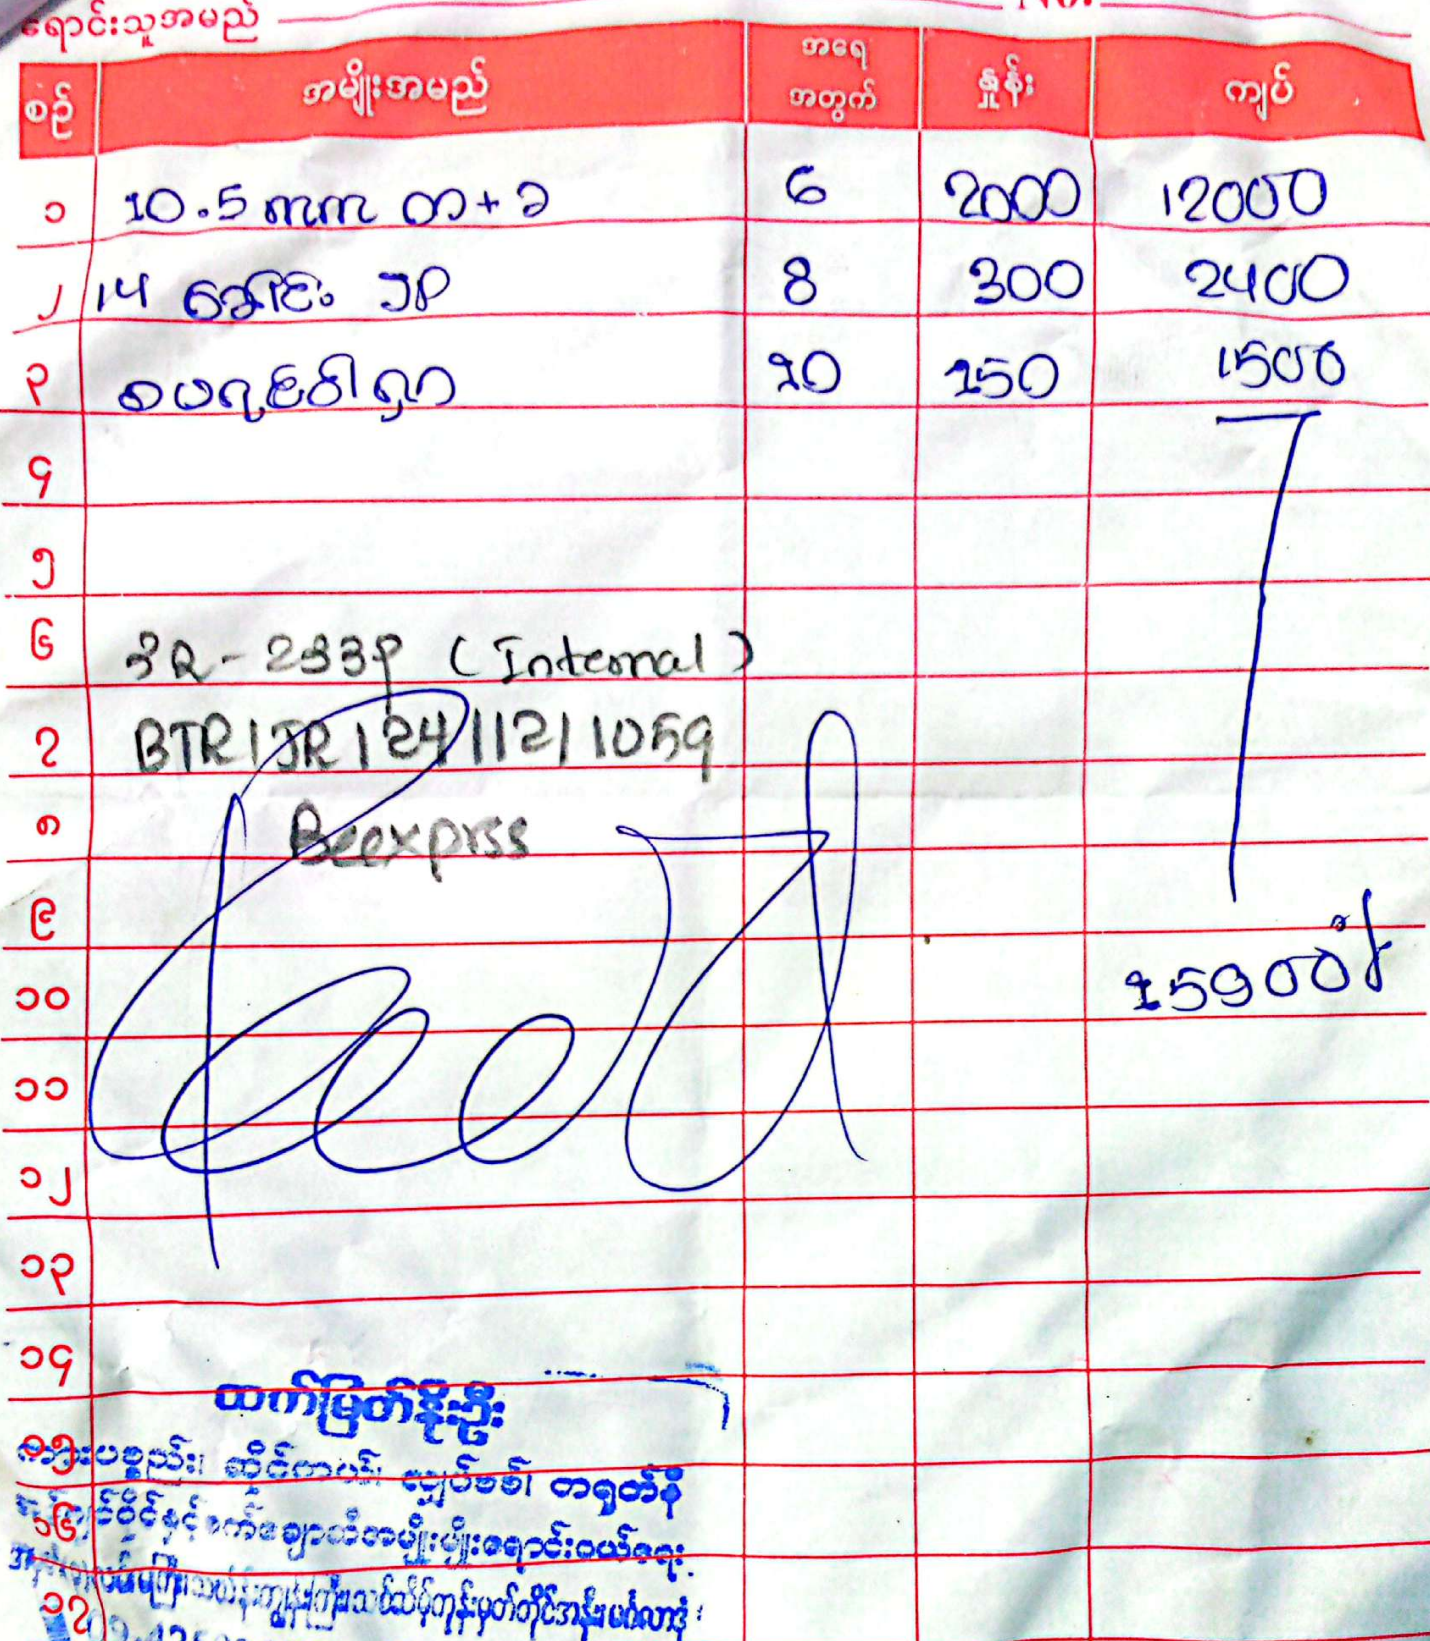 ရောင်းသူအမည် No.
စဉ် အမျိုးအမည် အရေအတွက် နှုန်း ကျပ်
၁ 10.5 ကက တ+ခ 6 2000 12000
၂ 14 ခေါင်း JP 8 300 2400
၃ စပရင်ဝါရှာ 10 150 1500
၄
၅
၆ 3Q-2333 (Internal)
၇ BTR/JR/24/12/1059
၈ Beexprss
၉
၁၀ 15900
၁၁
၁၂
၁၃
၁၄
ထက်မြတ်စိုးဦး
၁၅ ကားပစ္စည်း၊ ဆိုင်ကယ်၊ လျှပ်စစ်၊ တရုတ်နီ
၁၆ ဝိုင်နှင့်စက်ချောဆီအမျိုးမျိုးရောင်းဝယ်ရေး
၁၇